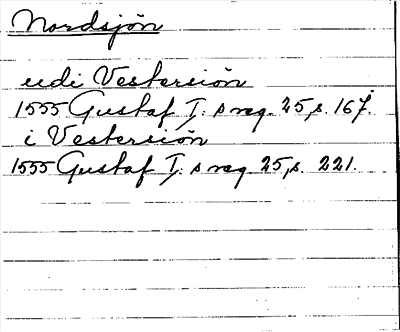 Nordsjön
udi Vestersiön
1555 Gustaf I:s reg. 25, s. 167.
i Vestersiön
1555 Gustaf I:s reg. 25, s. 221.